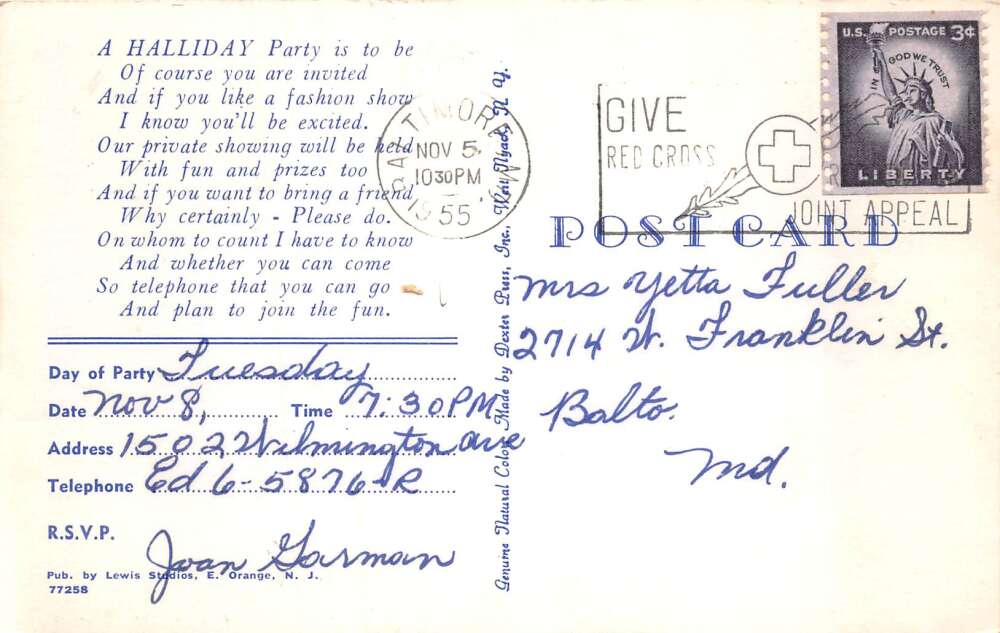 A HALLIDAY Party is to be
Of course you are invited
And if you like a fashion show
I know you'll be excited.
Our private showing will be held
With fun and prizes too
And if you want to bring a friend
Why certainly - Please do.
On whom to count I have to know
And whether you can come
So telephone that you can go
And plan to join the fun.
Day of Party Tuesday
Date Nov 8, Time 7:30 PM
Address 1502 Wilmington ave
Telephone Ed 6-5876-R
R.S.V.P.
Joan Garman
Pub. by Lewis Studios, E. Orange, N. J.
77258
Genuine Natural Color Made by Dexter Press, Inc., West Nyack, N. Y.
BALTIMORE, MD.
NOV 5
10 30 PM
1955
GIVE
RED CROSS
JOINT APPEAL
U.S. POSTAGE 3¢
IN GOD WE TRUST
LIBERTY
POST CARD
Mrs Yetta Fuller
2714 W. Franklin St.
Balto.
Md.